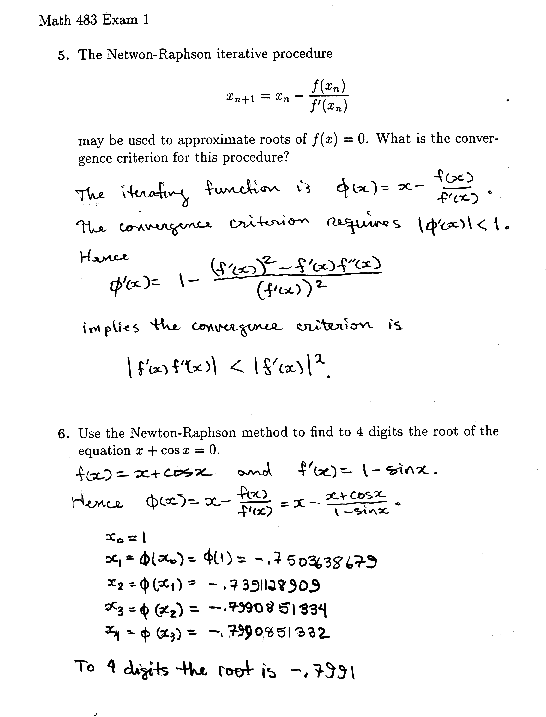 Math 483 Exam 1
5. The Netwon-Raphson iterative procedure
x_{n+1} = x_n - f(x_n)/f'(x_n)
may be used to approximate roots of f(x) = 0. What is the conver-
gence criterion for this procedure?
The iterating function is φ(x) = x - f(x)/f'(x).
The convergence criterion requires |φ'(x)| < 1.
Hence
φ'(x) = 1 - ((f'(x))² - f'(x)f''(x))/(f'(x))²
implies the convergence criterion is
|f'(x)f''(x)| < |f'(x)|².
6. Use the Newton-Raphson method to find to 4 digits the root of the
equation x + cos x = 0.
f(x) = x + cos x and f'(x) = 1 - sin x.
Hence φ(x) = x - f(x)/f'(x) = x - (x + cos x)/(1 - sin x).
x₀ = 1
x₁ = φ(x₀) = φ(1) = -.7503638679
x₂ = φ(x₁) = -.7391128909
x₃ = φ(x₂) = -.7390851334
x₄ = φ(x₃) = -.7390851332
To 4 digits the root is -.7391